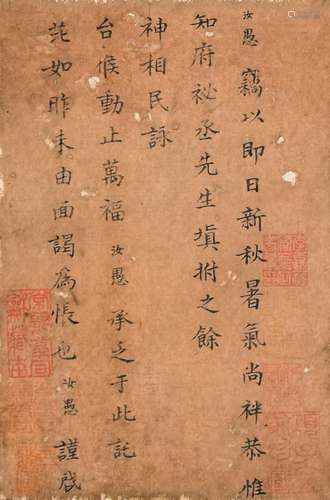 汝愚 竊以即日新秋暑氣尚袢恭惟
知府祕丞先生填拊之餘
神相民詠
台候動止萬福 汝愚 承乏于此託
芘如昨未由面謁為悵也 汝愚 謹啟